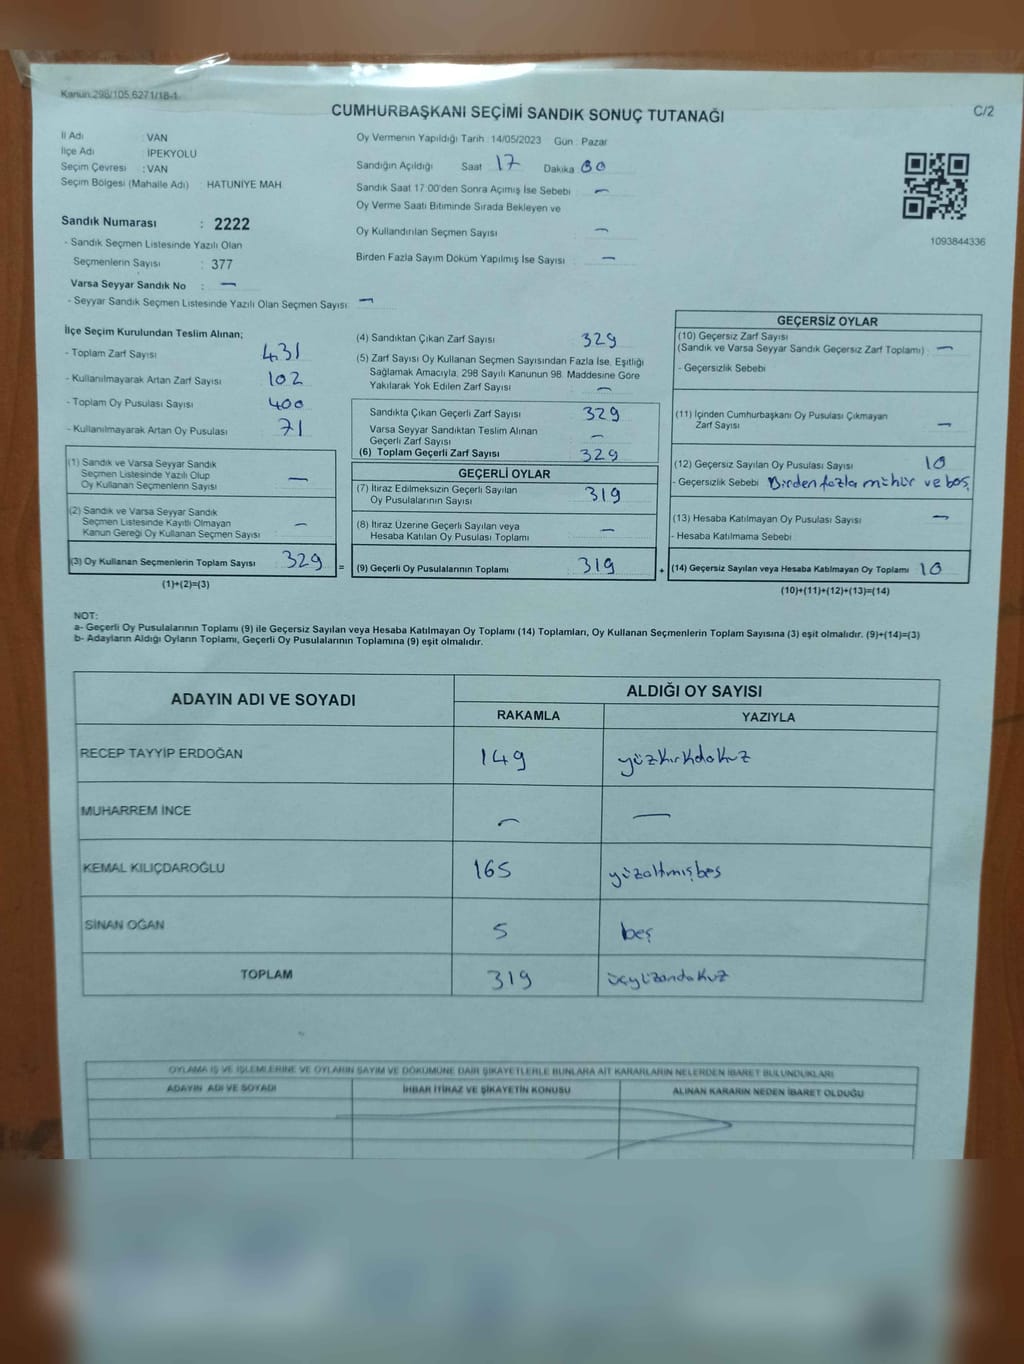 Kanun.298/105.6271/18-1
CUMHURBAŞKANI SEÇİMİ SANDIK SONUÇ TUTANAĞI
C/2
İl Adı : VAN
İlçe Adı : İPEKYOLU
Seçim Çevresi : VAN
Seçim Bölgesi (Mahalle Adı) : HATUNİYE MAH
Sandık Numarası : 2222
- Sandık Seçmen Listesinde Yazılı Olan
Seçmenlerin Sayısı : 377
Varsa Seyyar Sandık No : —
- Seyyar Sandık Seçmen Listesinde Yazılı Olan Seçmen Sayısı: —
Oy Vermenin Yapıldığı Tarih : 14/05/2023 Gün : Pazar
Sandığın Açıldığı Saat 17 Dakika 00
Sandık Saat 17:00'den Sonra Açımış İse Sebebi —
Oy Verme Saati Bitiminde Sırada Bekleyen ve
Oy Kullandırılan Seçmen Sayısı —
Birden Fazla Sayım Döküm Yapılmış İse Sayısı —
1093844336
İlçe Seçim Kurulundan Teslim Alınan;
- Toplam Zarf Sayısı 431
- Kullanılmayarak Artan Zarf Sayısı 102
- Toplam Oy Pusulası Sayısı 400
- Kullanılmayarak Artan Oy Pusulası 71
(1) Sandık ve Varsa Seyyar Sandık
Seçmen Listesinde Yazılı Olup
Oy Kullanan Seçmenlerin Sayısı —
(2) Sandık ve Varsa Seyyar Sandık
Seçmen Listesinde Kayıtlı Olmayan
Kanun Gereği Oy Kullanan Seçmen Sayısı —
(3) Oy Kullanan Seçmenlerin Toplam Sayısı 329 =
(1)+(2)=(3)
(4) Sandıktan Çıkan Zarf Sayısı 329
(5) Zarf Sayısı Oy Kullanan Seçmen Sayısından Fazla İse, Eşitliği
Sağlamak Amacıyla, 298 Sayılı Kanunun 98. Maddesine Göre
Yakılarak Yok Edilen Zarf Sayısı —
Sandıkta Çıkan Geçerli Zarf Sayısı 329
Varsa Seyyar Sandıktan Teslim Alınan
Geçerli Zarf Sayısı —
(6) Toplam Geçerli Zarf Sayısı 329
GEÇERLİ OYLAR
(7) İtiraz Edilmeksizin Geçerli Sayılan
Oy Pusulalarının Sayısı 319
(8) İtiraz Üzerine Geçerli Sayılan veya
Hesaba Katılan Oy Pusulası Toplamı —
(9) Geçerli Oy Pusulalarının Toplamı 319 +
GEÇERSİZ OYLAR
(10) Geçersiz Zarf Sayısı
(Sandık ve Varsa Seyyar Sandık Geçersiz Zarf Toplamı) —
- Geçersizlik Sebebi
(11) İçinden Cumhurbaşkanı Oy Pusulası Çıkmayan
Zarf Sayısı —
(12) Geçersiz Sayılan Oy Pusulası Sayısı 10
- Geçersizlik Sebebi Birden fazla mühür ve boş
(13) Hesaba Katılmayan Oy Pusulası Sayısı —
- Hesaba Katılmama Sebebi
(14) Geçersiz Sayılan veya Hesaba Katılmayan Oy Toplamı 10
(10)+(11)+(12)+(13)=(14)
NOT:
a- Geçerli Oy Pusulalarının Toplamı (9) ile Geçersiz Sayılan veya Hesaba Katılmayan Oy Toplamı (14) Toplamları, Oy Kullanan Seçmenlerin Toplam Sayısına (3) eşit olmalıdır. (9)+(14)=(3)
b- Adayların Aldığı Oyların Toplamı, Geçerli Oy Pusulalarının Toplamına (9) eşit olmalıdır.
ADAYIN ADI VE SOYADI ALDIĞI OY SAYISI
RAKAMLA YAZIYLA
RECEP TAYYİP ERDOĞAN 149 yüzkırkdokuz
MUHARREM İNCE — —
KEMAL KILIÇDAROĞLU 165 yüzaltmışbeş
SİNAN OĞAN 5 beş
TOPLAM 319 üçyüzondokuz
OYLAMA İŞ VE İŞLEMLERİNE VE OYLARIN SAYIM VE DÖKÜMÜNE DAİR ŞİKAYETLERLE BUNLARA AİT KARARLARIN NELERDEN İBARET BULUNDUKLARI
ADAYIN ADI VE SOYADI İHBAR İTİRAZ VE ŞİKAYETİN KONUSU ALINAN KARARIN NEDEN İBARET OLDUĞU